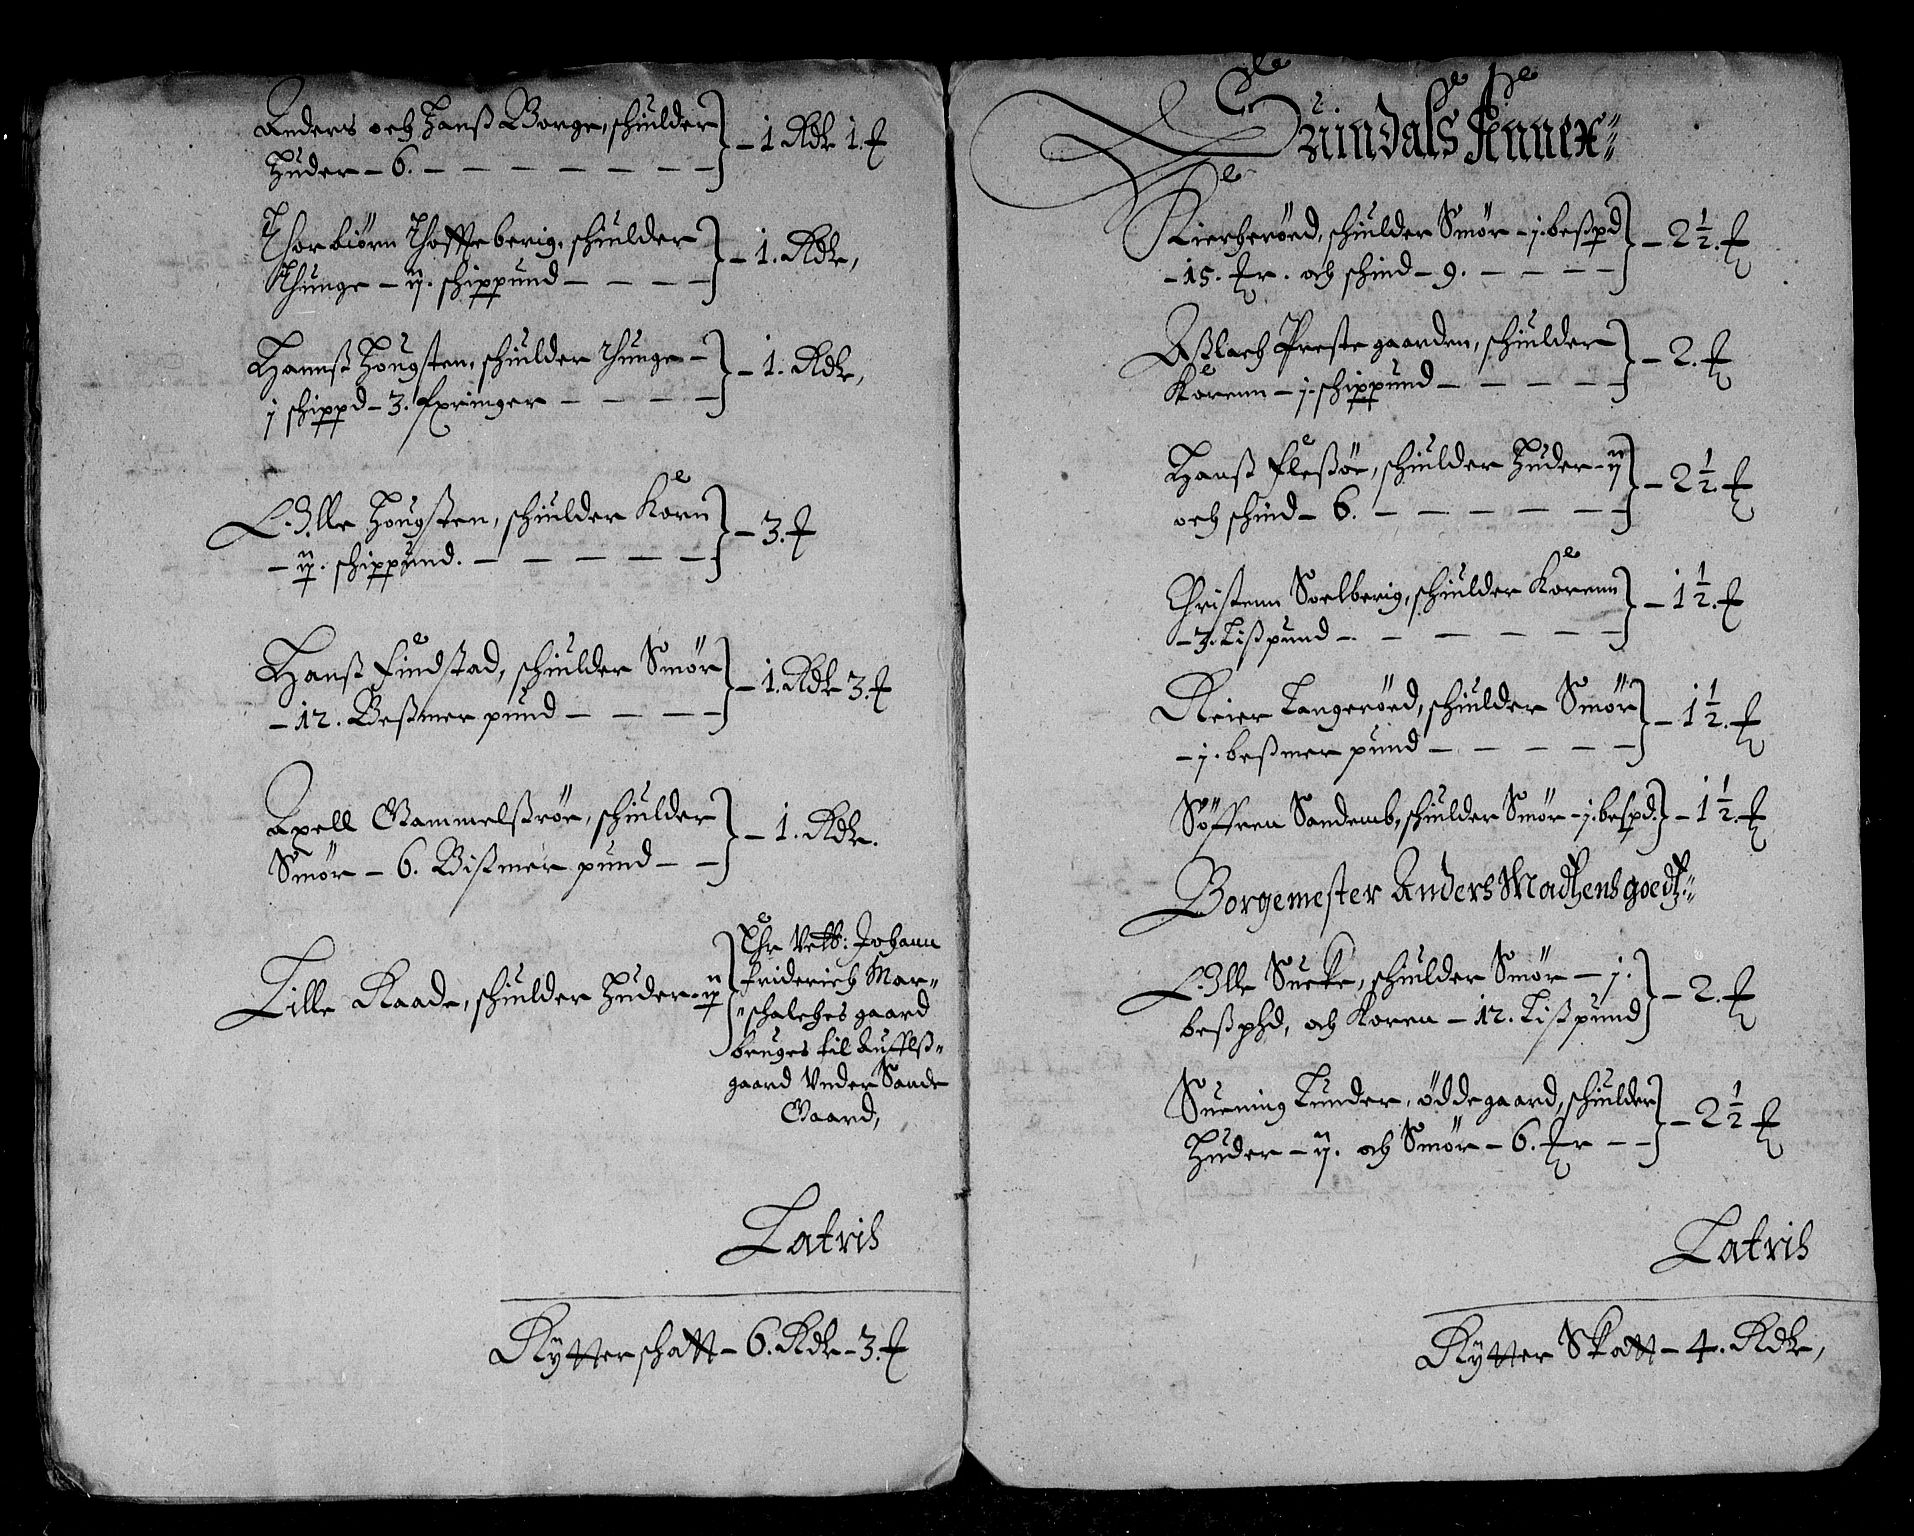 Anders och Hanß Borge, schiulder
Huder – 6. – 1 Rdr 1. ₰
Thorbiørn Thoffteberig, schiulder
Thunge – ij. schippund – 1. Rdr,
Hannß Hougsten, schiulder thunge –
j schippd – 3. fxringer – 1. Rdr,
Olle Hougsten, schiulder Korn
– ij. schippund. – 3. ₰
Hanß Findstad, schiulder Smör
– 12. Beßmer pund – 1. Rdr 3. ₰
Axell Gammelßrör, schiulder
Smör – 6. Bißmer pund – 1. Rdr.
Lille Raade, schiulder Huder – ij
Ehr Velb: Johann
Friderich Mar"
"schalches gaard
bruges til Aufflß"
gaard Vnder Sande
Gaard,
Latris
Rytterschatt – 6. Rdr – 3. ₰
Suindals Annex"
Kircheröed, schiulder Smör – j. beßpd
– 15. ₰r. och schind – 9. – 2 1/2. ₰
Aßlach Prestegaarden, schiulder
Korenn – j. schippund – 2. ₰
Hanß Fleßör, schiulder Huder – ij
och schind – 6. – 2 1/2. ₰
Christenn Soelberig, schiulder Korenn
– 3. Lißpund – 1 1/2. ₰
Reier Langeröed, schiulder Smör
– j. beßmer pund – 1 1/2. ₰
Söffren Sandemb, schiulder Smör – j. bespd. – 1 1/2. ₰
Borgemester Anders Madtzens goedtz"
Olle Sueke, schiulder Smör – j.
beßphd, och Koren – 12. Lißpund – 2. ₰
Suening Lunder, öddegaard, schiulder
Huder – ij. och Smör – 6. ₰r – 2 1/2 ₰
Latris
Rytter Skatt – 4. Rdr,